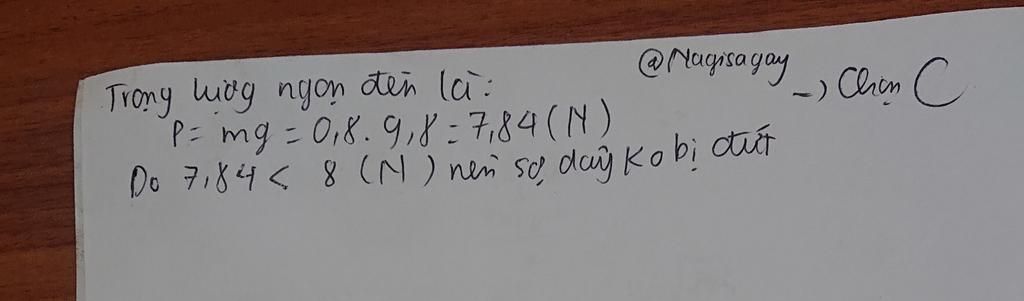 Trọng lượng ngọn đèn là:
@Nagisagay
→ Chọn C
P = mg = 0,8. 9,8 = 7,84 (N)
Do 7,84 < 8 (N) nên sợi dây ko bị đứt